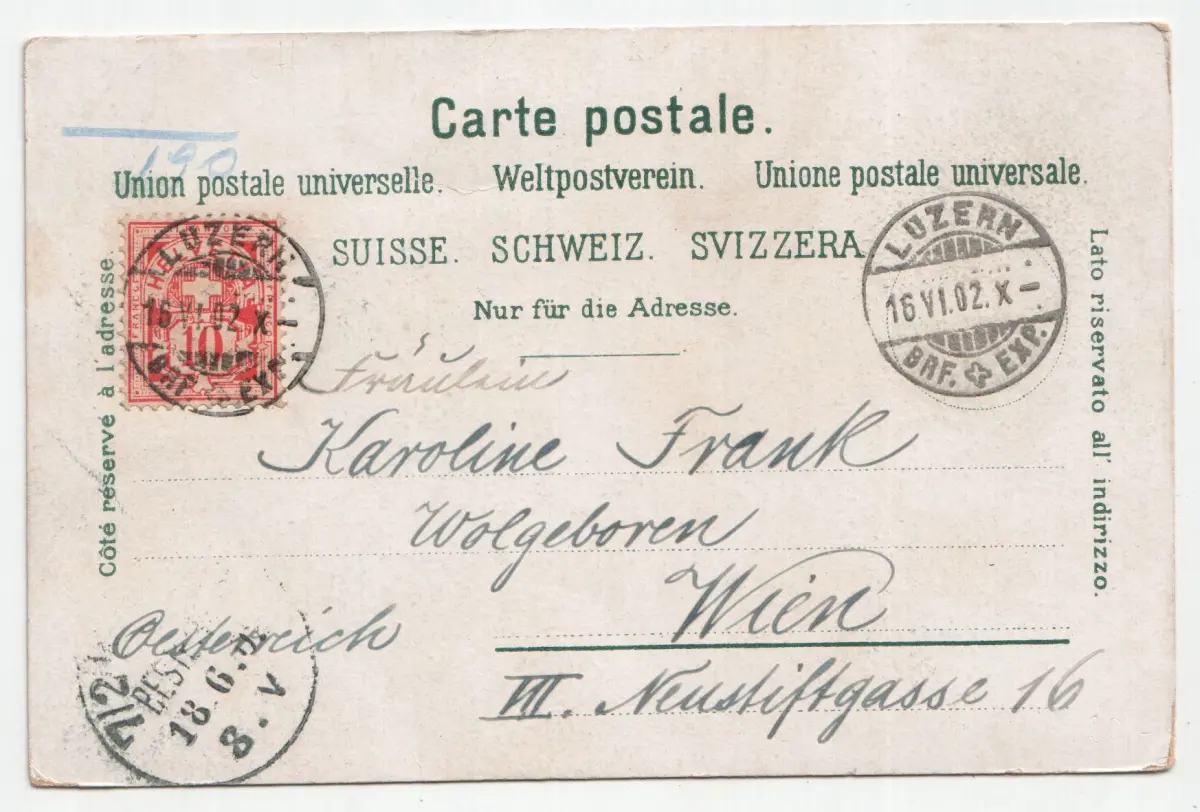 Carte postale.
190
Union postale universelle. Weltpostverein. Unione postale universale.
SUISSE. SCHWEIZ. SVIZZERA
Nur für die Adresse.
Côté réservé à l'adresse
Lato riservato all' indirizzo.
FRANCO
10
LUZERN
16 VI.02. X
BRF. EXP.
LUZERN
16 VI.02. X –
BRF. EXP.
Fräulein
Karoline Frank
Wolgeboren
Wien
Oesterreich
VII. Neustiftgasse 16
7/2
BEST
18.6.02
8. V